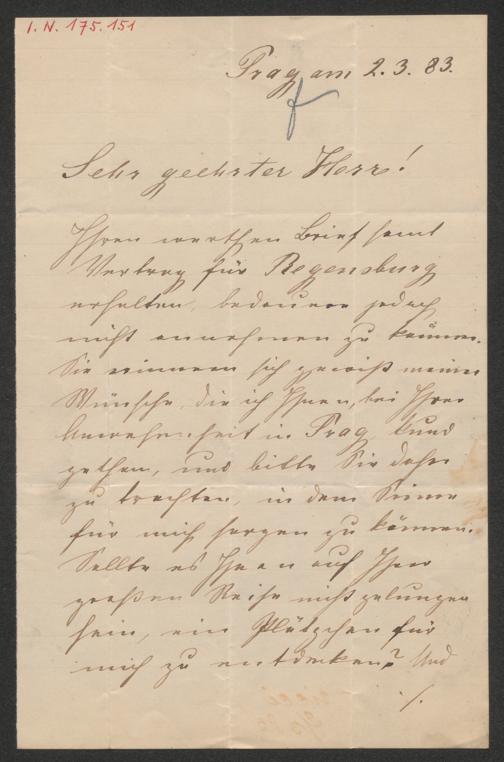 I. N. 175.151
Prag am 2. 3. 83.
Sehr geehrter Herr!
Ihren werthen Brief samt
Vertrag für Regensburg
erhalten, bedauere jedoch
nicht annehmen zu können.
Sie erinnern sich gewiß meiner
Wünsche, die ich Ihnen, bei Ihrer
Anwesenheit in Prag kund
gethan, und bitte Sie daher
zu trachten, in dem Sinne
für mich sorgen zu können.
Sollte es Ihnen auf Ihrer
großen Reise nicht gelungen
sein, ein Plätzchen für
mich zu entdecken? Und
./.